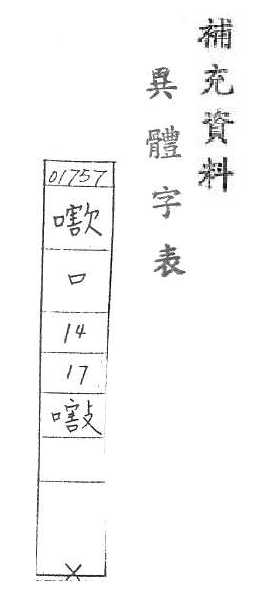 補充資料
異體字表
01757
口
14
17